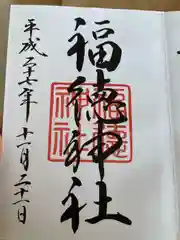 福徳神社
平成二十七年十一月二十一日
福徳神社